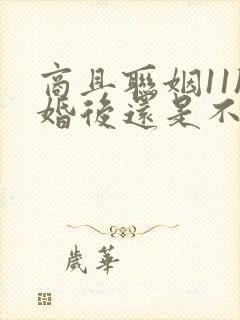 商且聯姻11
婚後還是不
歲華